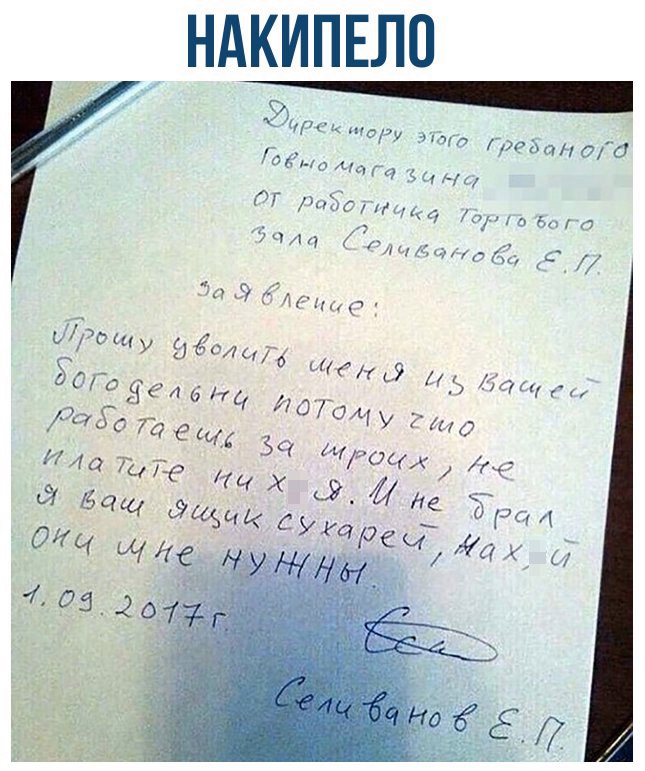 НАКИПЕЛО
Директору этого гребаного
говномагазина
от работника торгового
зала Селиванова Е.П.
заявление:
Прошу уволить меня из вашей
богодельни потому что
работаешь за троих, не
платите ни х я. И не брал
я ваш ящик сухарей, нах й
они мне нужны.
1.09.2017г.
Селиванов Е.П.